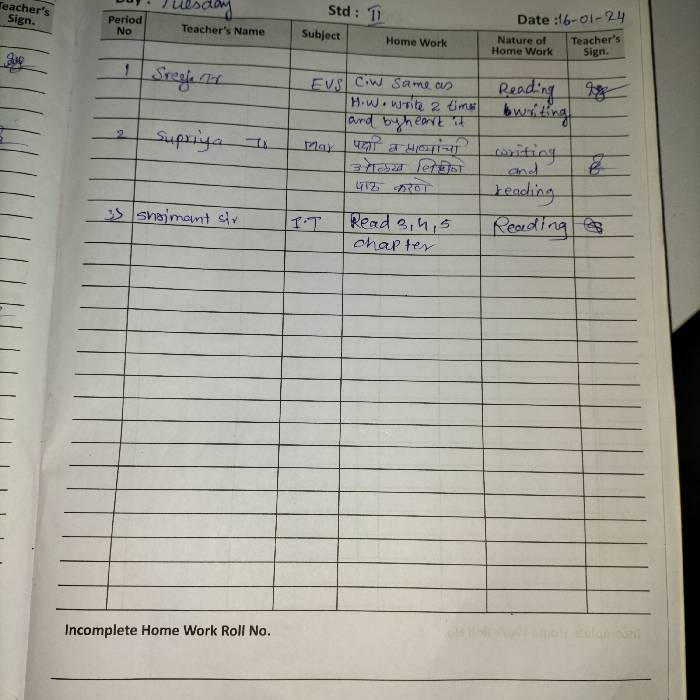 Teacher's
Sign.
Day : Tuesday Std : II Date : 16-01-24
Period No Teacher's Name Subject Home Work Nature of Home Work Teacher's Sign.
1 Sreeja Tr EVS C.W Same as Reading
H.W. write 2 times & writing
and byheart it
2 Supriya Tr Mar पक्षी व प्राण्यांची writing
ओळख लिहिणे and
पाठ करणे reading
3) Shajmant Sir I.T Read 3, 4, 5 Reading
chapter
Incomplete Home Work Roll No.